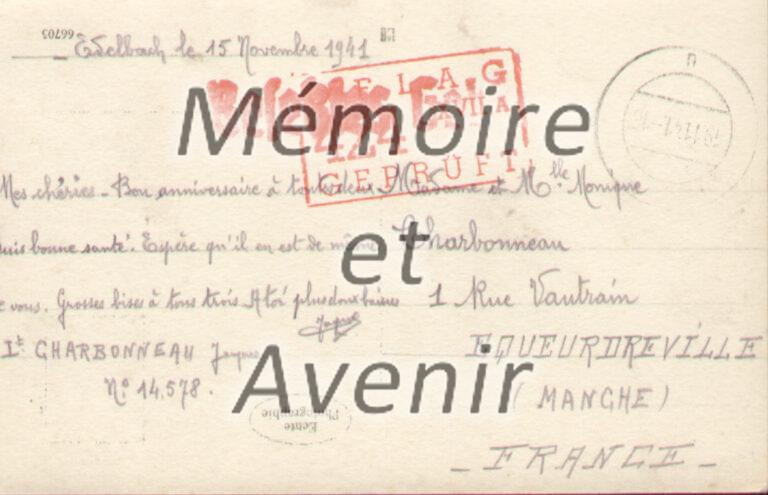 66705
Edelbach le 15 Novembre 1941
GEPRÜFT
Mes chéries - Bon anniversaire à toutes deux
suis bonne santé. Espère qu'il en est de même
vous. Grosses bises à tous trois. A toi plus doux baisers
Jacques
Lt CHARBONNEAU Jacques
N° 14.578.
Madame et Mlle Monique
Charbonneau
1 Rue Vautrain
EQUEURDREVILLE
(MANCHE)
_ FRANCE _
Echte
Photographie
Mémoire
et
Avenir